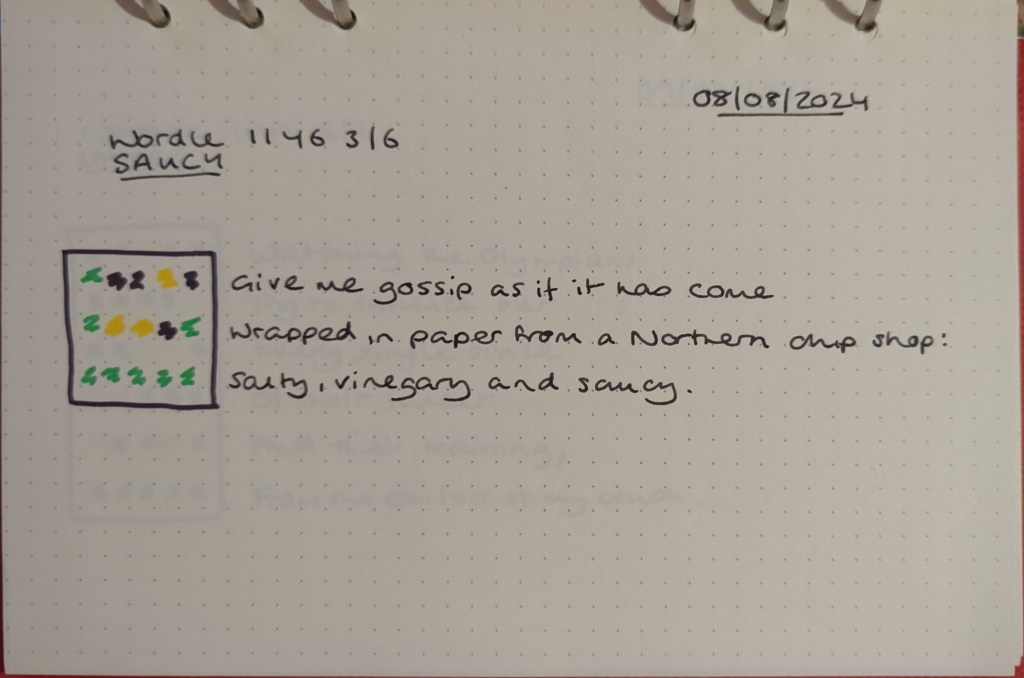 08/08/2024
Wordle 1146 3/6
SAUCY
Give me gossip as if it has come
wrapped in paper from a Northern chip shop:
salty, vinegary and saucy.